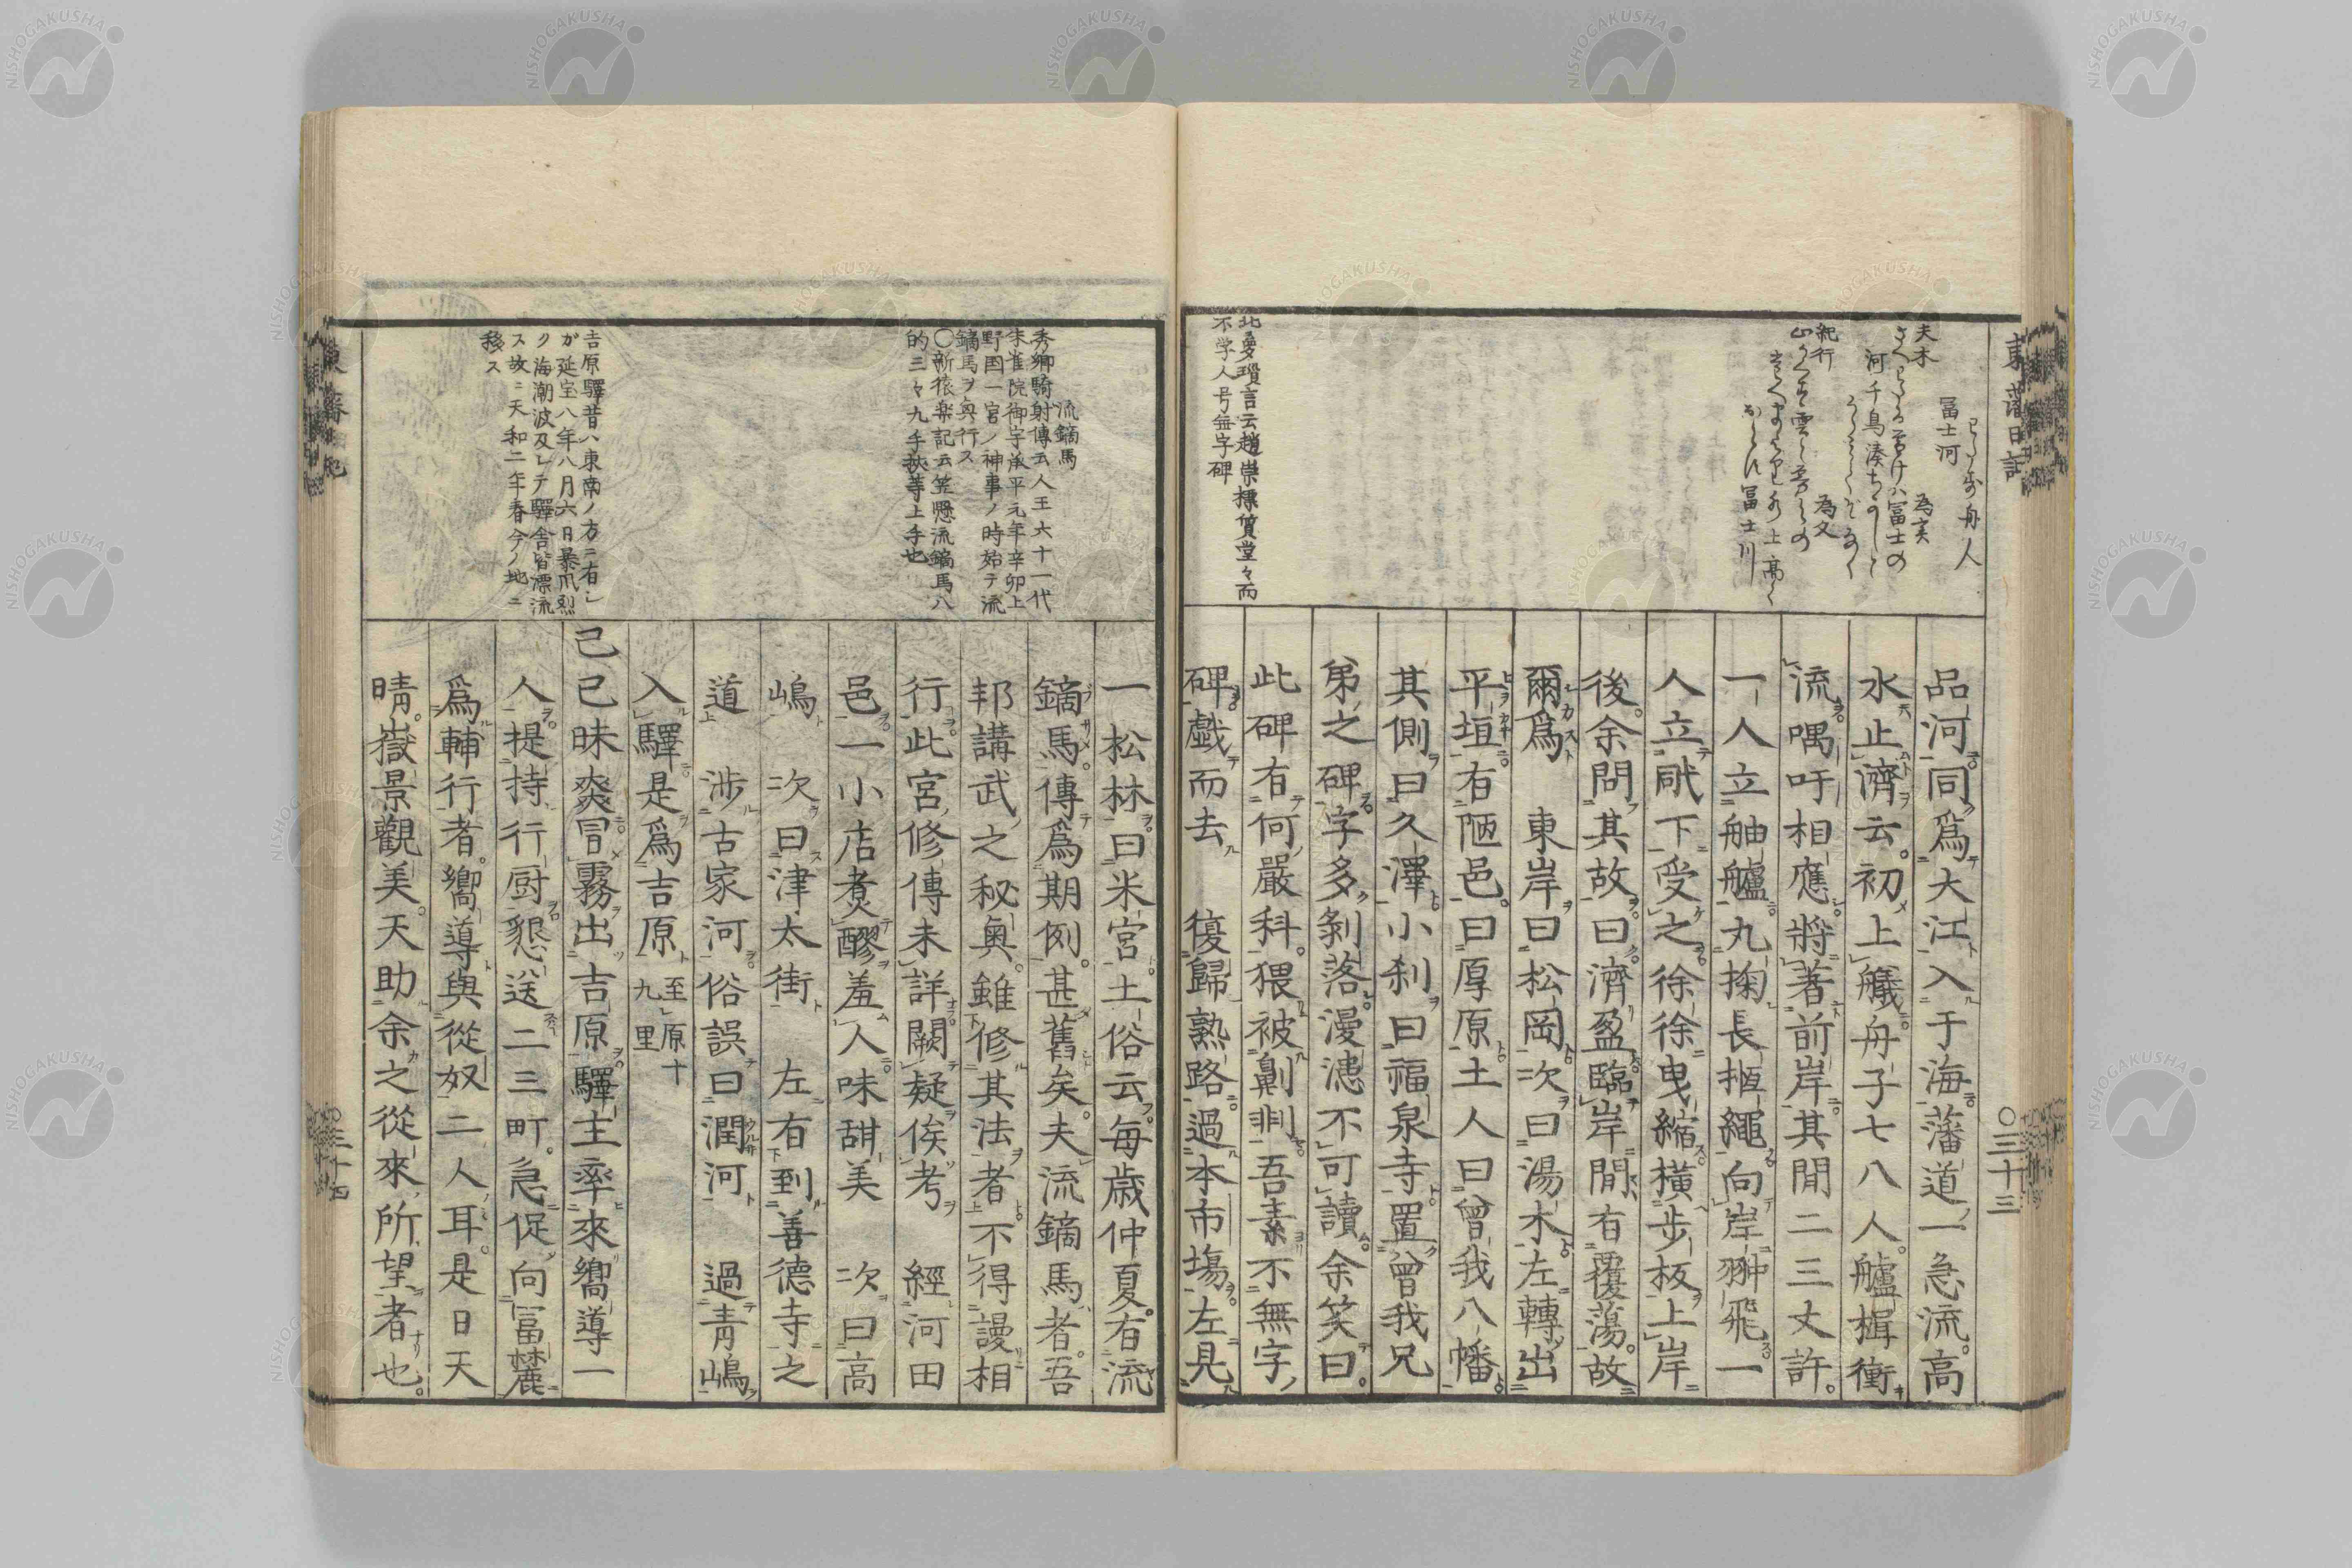 東藩日記
○三十三
冨士河
夫木
為実
河千鳥湊
紀行
為文
冨士川
北夢瑣言云趙崇標質堂々而
不学人号無字碑
品河同爲大江入于海藩道一急流高
水止濟云初上艤舟子七八人艫楫衝
流喁吁相應將著前岸其間二三丈許
一人立舳艫丸掬長搄繩向岸翀飛一
人立𦨭下受之徐徐曳縮橫步板上岸
後余問其故曰濟盈臨岸間有覆蕩故
爾爲 東岸曰松岡次曰湯木左轉出
平垣有陋邑曰厚原土人曰曾我八幡
其側曰久澤小刹曰福泉寺置曾我兄
弟之碑字多剝落漫漶不可讀余笑曰
此碑有何嚴科猥被劓剕吾素不無字
碑戲而去 復歸熟路過本市場左見
流鏑馬
秀郷騎射傳云人王六十一代
朱雀院御宇承平元年辛卯上
野国一宮ノ神事ノ時始テ流
鏑馬ヲ興行ス
○新猿楽記云笠懸流鏑馬八
的三々九手挾等上手也
吉原驛昔ハ東南ノ方ニ有シ
が延宝八年八月六日暴風烈
ク海潮波及シテ驛舎皆漂流
ス故ニ天和二年春今ノ地ニ
移ス
一松林曰米宮土俗云每歳仲夏有流
鏑馬傳爲期例甚舊矣夫流鏑馬者吾
邦講武之秘奧雖修其法者不得謾相
行此宮修傳未詳闕疑俟考 經河田
邑一小店煑醪羞人味甜美 次曰高
嶋 次曰津太街 左有到善德寺之
道 涉古家河俗誤曰潤河 過靑嶋
入驛是爲吉原 至原十九里
己巳昧爽冐霧出吉原驛主率來嚮導一
人提持行厨懇送二三町急促向冨麓
爲輔行者嚮導與從奴二人耳是日天
晴嶽景觀美天助余之從來所望者也